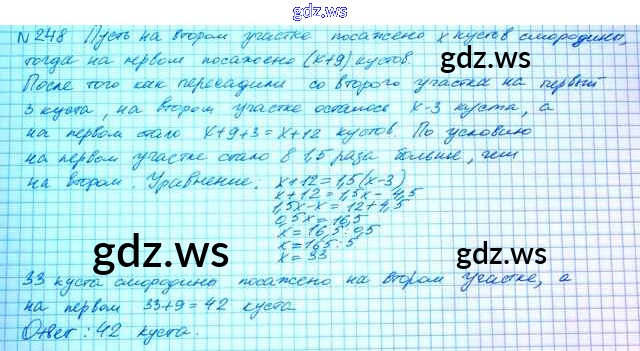 gdz.ws
№248 Пусть на втором участке посажено x кустов смородины,
тогда на первом посажено (x+9) кустов.
gdz.ws
После того как пересадили со второго участка на первый
3 куста, на втором участке осталось x-3 куста, а
на первом стало x+9+3=x+12 кустов. По условию
на первом участке стало в 1,5 раза больше, чем
на втором. Уравнение: x+12=1,5(x-3)
x+12=1,5x-4,5
1,5x-x=12+4,5
0,5x=16,5
x=16,5:0,5
x=165:5
x=33
gdz.ws
gdz.ws
33 куста смородины посажено на втором участке, а
на первом 33+9=42 куста
Ответ: 42 куста.
gdz.ws